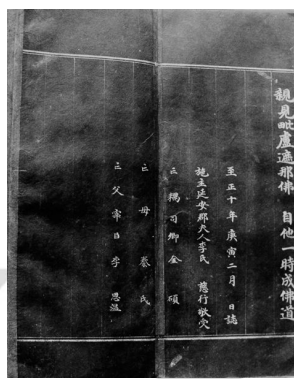 親見毗盧遮那佛 自他一時成佛道
至正十年庚寅二月 日誌
施主延安郡夫人李氏 慈行敬
亡 司卿金 碩
亡 母 蔡 氏
亡 父 李 思溫